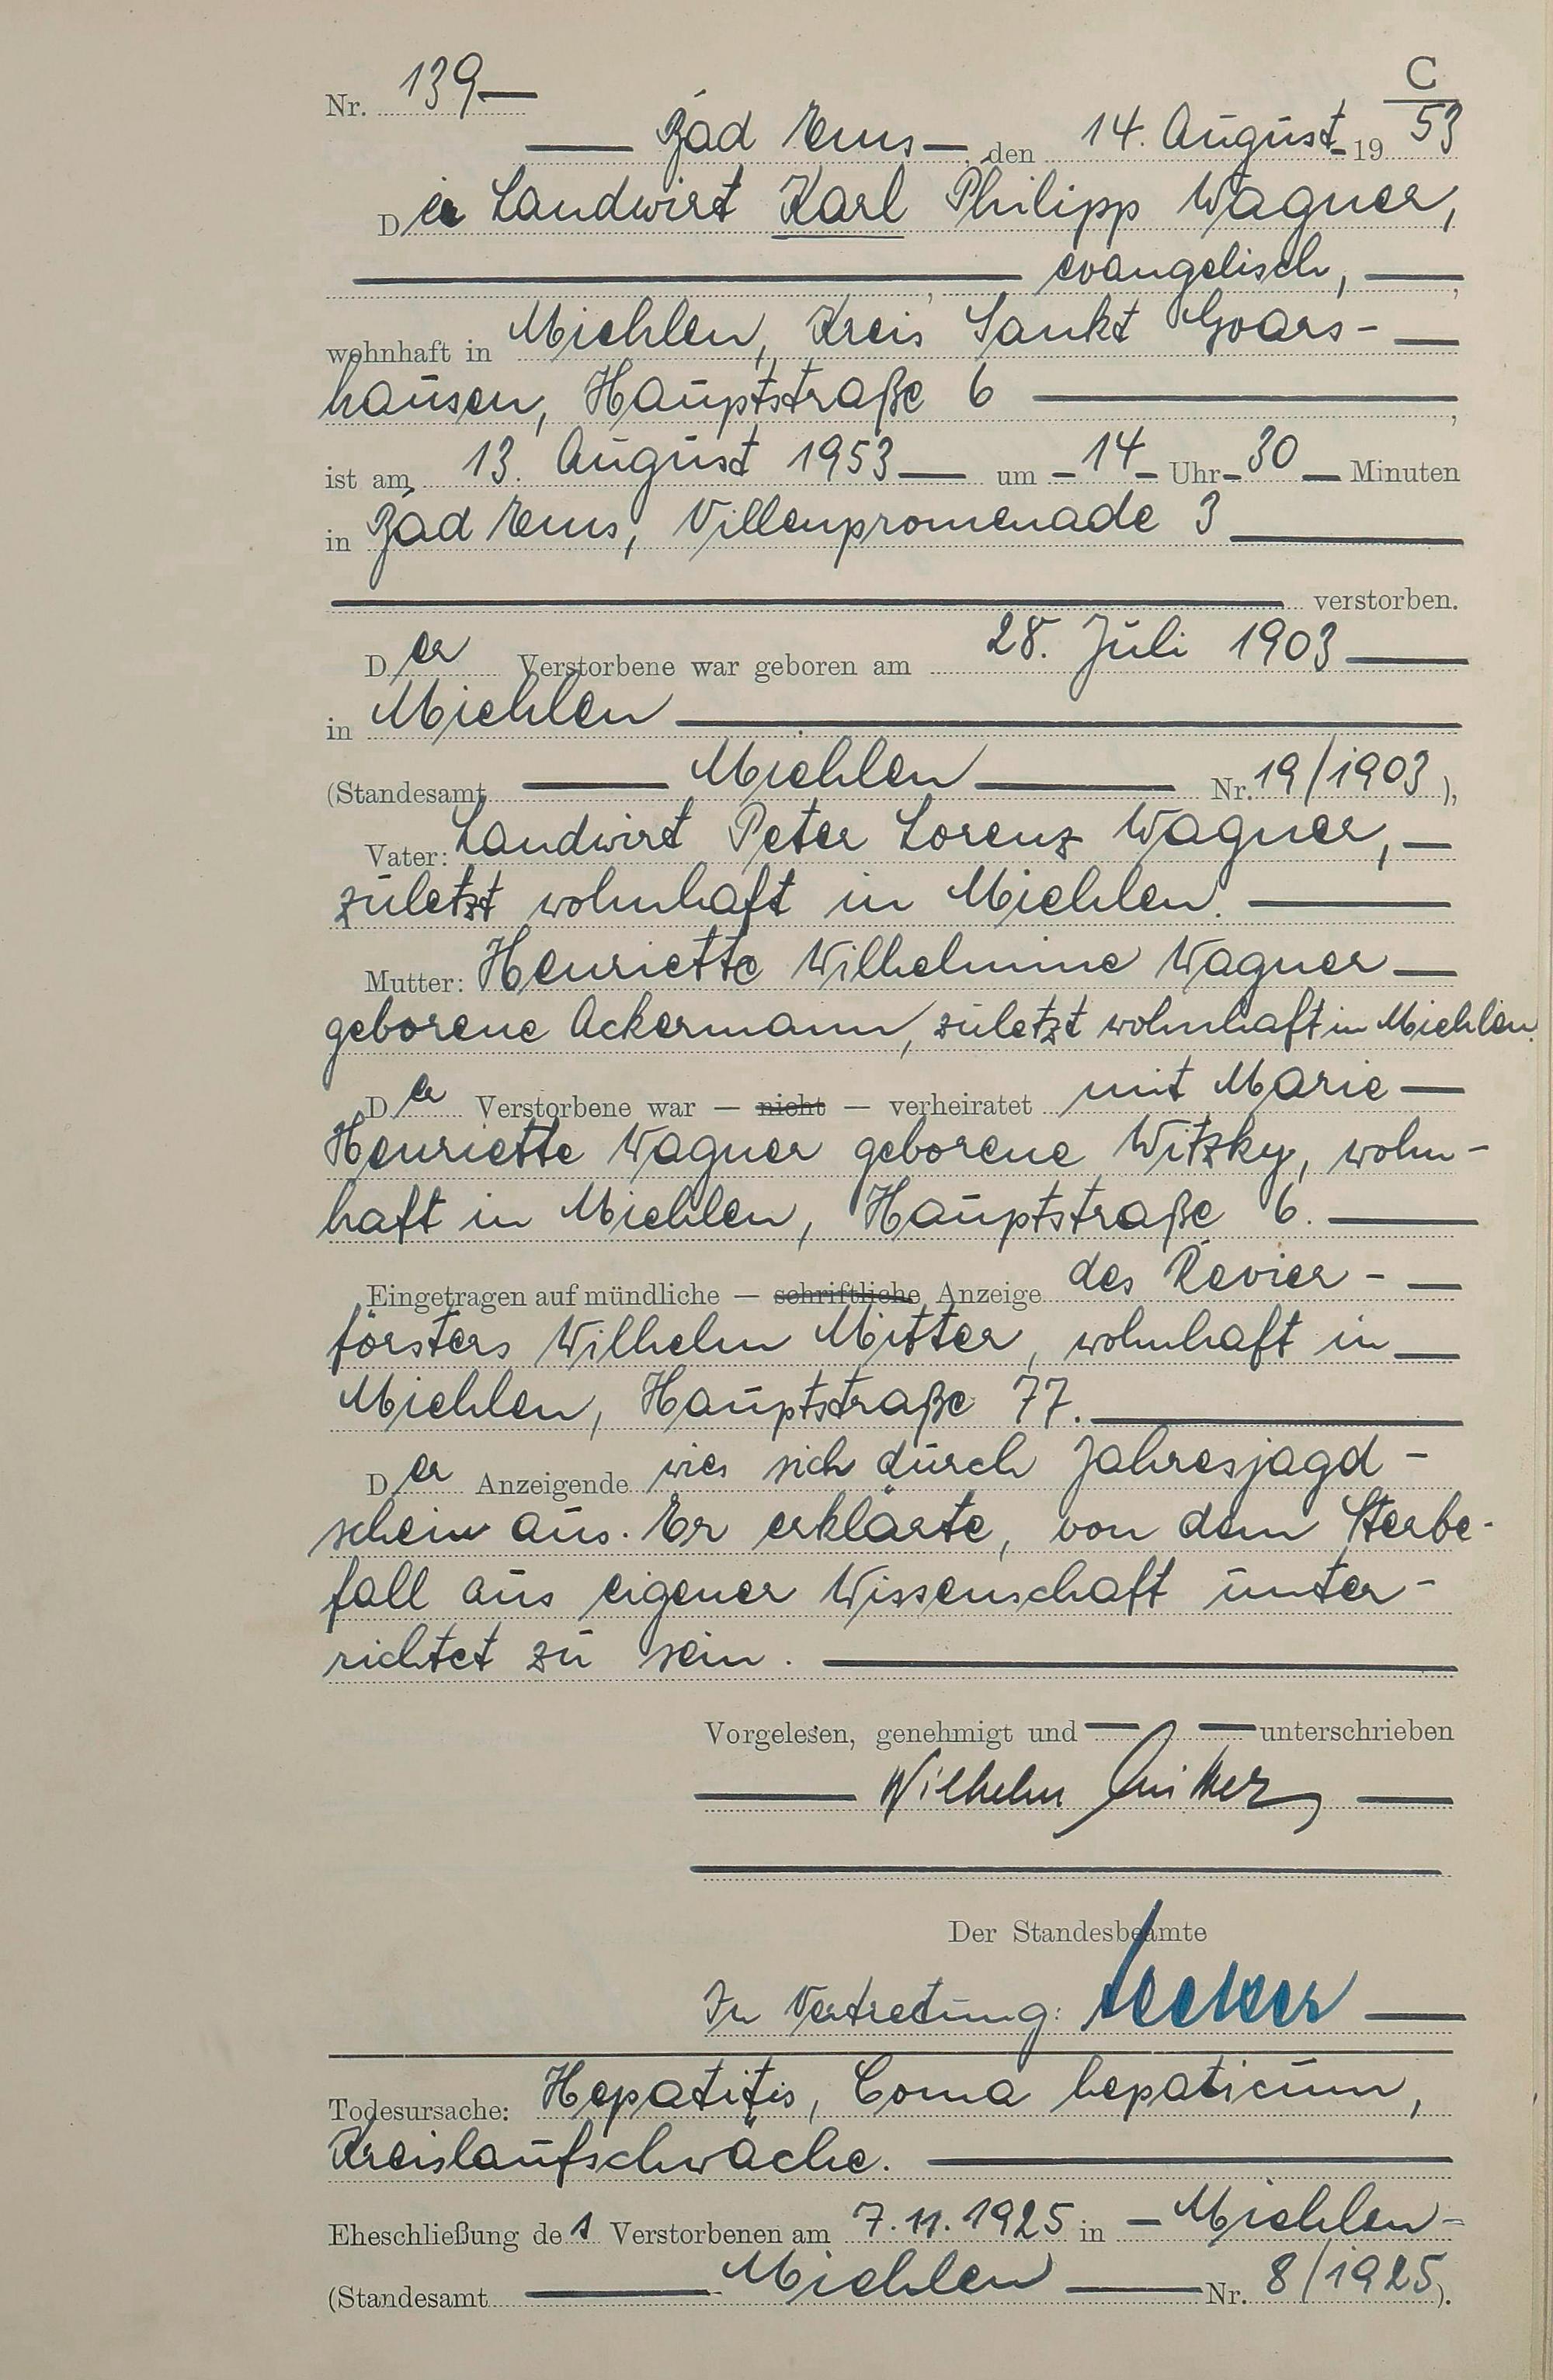 C
Nr. 139
Bad Ems, den 14. August 19 53
Der Landwirt Karl Philipp Wagner,
evangelisch,
wohnhaft in Miehlen, Kreis Sankt Goars-
hausen, Hauptstraße 6
ist am 13. August 1953 um 14 Uhr 30 Minuten
in Bad Ems, Villenpromenade 3
verstorben.
Der Verstorbene war geboren am 28. Juli 1903
in Miehlen
(Standesamt Miehlen Nr. 19/1903),
Vater: Landwirt Peter Lorenz Wagner,
zuletzt wohnhaft in Miehlen.
Mutter: Henriette Wilhelmine Wagner
geborene Ackermann, zuletzt wohnhaft in Miehlen.
Der Verstorbene war — nicht — verheiratet mit Marie
Henriette Wagner geborene Witzky, wohn-
haft in Miehlen, Hauptstraße 6.
Eingetragen auf mündliche — schriftliche Anzeige des Revier-
försters Wilhelm Mitter, wohnhaft in
Miehlen, Hauptstraße 77.
Der Anzeigende wies sich durch Jahresjagd-
schein aus. Er erklärte, von dem Sterbe-
fall aus eigener Wissenschaft unter-
richtet zu sein.
Vorgelesen, genehmigt und unterschrieben
Wilhelm Mitter
Der Standesbeamte
In Vertretung:
Todesursache: Hepatitis, Coma hepaticum,
Kreislaufschwäche.
Eheschließung des Verstorbenen am 7.11.1925 in Miehlen
(Standesamt Miehlen Nr. 8/1925).